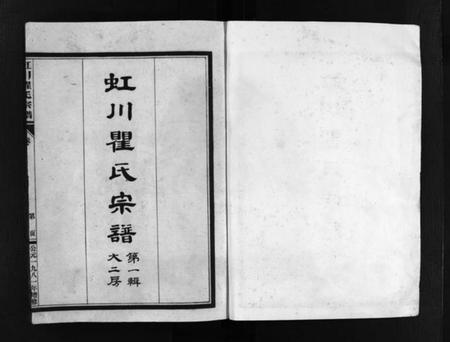 虹川瞿氏宗譜
第一輯
大二房
虹川瞿氏宗譜
卷
第 頁
公元一九八一年